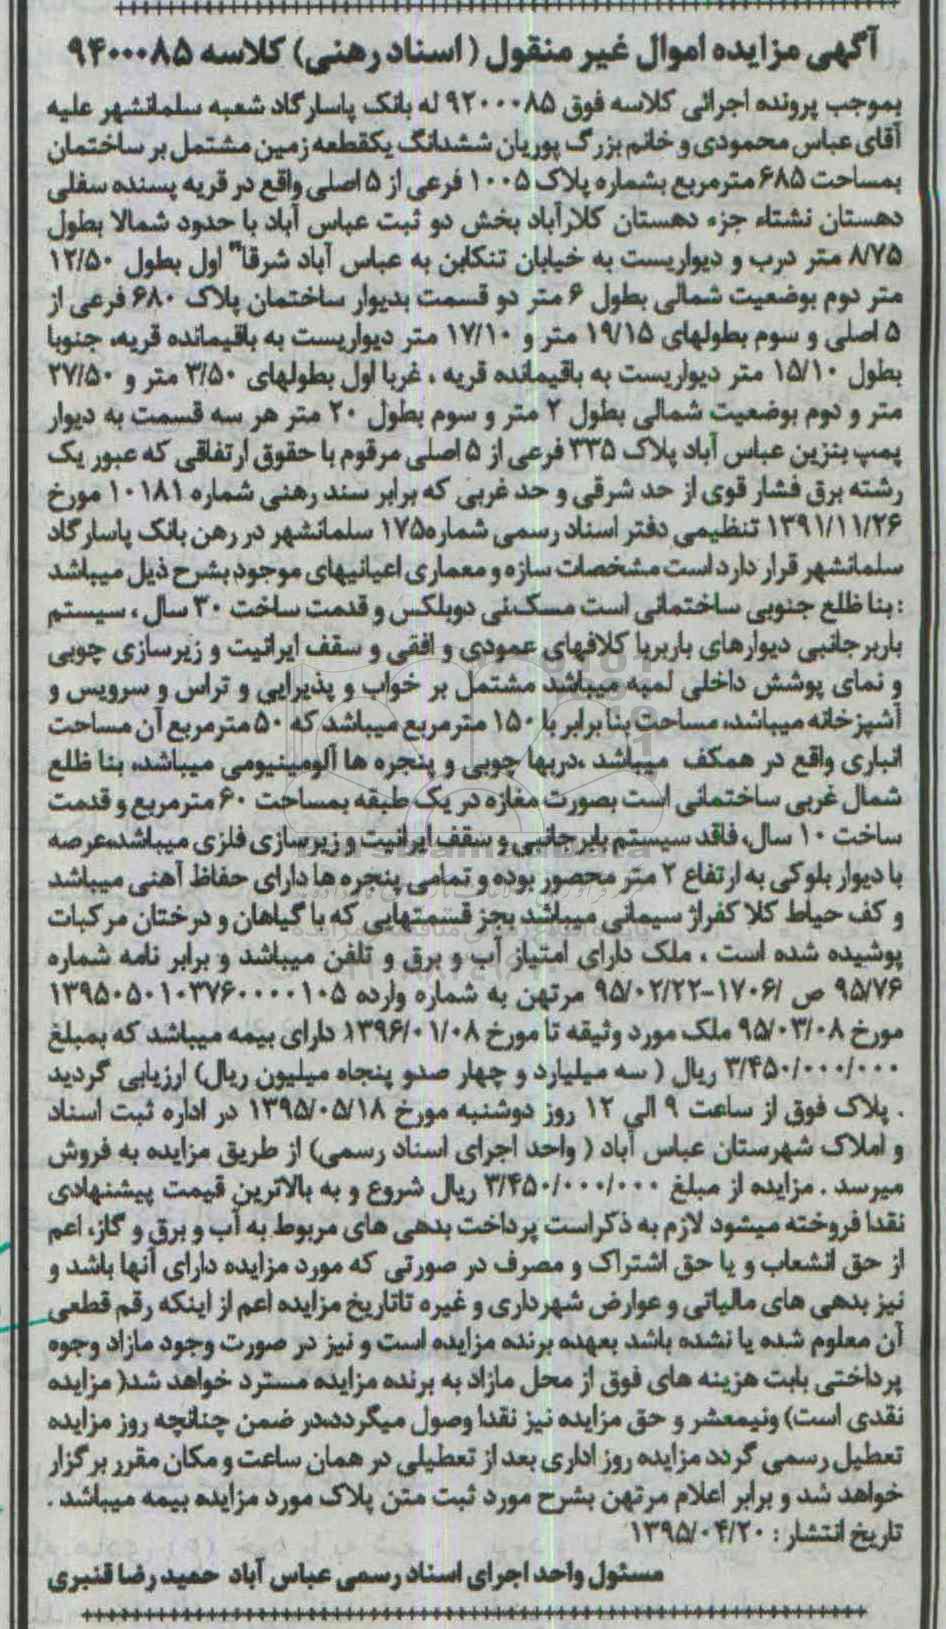 آگهی مزایده اموال غیر منقول (اسناد رهنی) کلاسه ۹۴۰۰۰۸۵
بموجب پرونده اجرائی کلاسه فوق ۹۲۰۰۰۸۵ له بانک پاسارگاد شعبه سلمانشهر علیه
آقای عباس محمودی و خانم بزرگ پوریان ششدانگ یکقطعه زمین مشتمل بر ساختمان
بمساحت ۶۸۵ مترمربع بشماره پلاک ۱۰۰۵ فرعی از ۵ اصلی واقع در قریه پسنده سفلی
دهستان نشتاء جزء دهستان کلارآباد بخش دو ثبت عباس آباد با حدود شمالا بطول
۸/۷۵ متر درب و دیواریست به خیابان تنکابن به عباس آباد شرقا" اول بطول ۱۲/۵۰
متر دوم بوضعیت شمالی بطول ۶ متر دو قسمت بدیوار ساختمان پلاک ۶۸۰ فرعی از
۵ اصلی و سوم بطولهای ۱۹/۱۵ متر و ۱۷/۱۰ متر دیواریست به باقیمانده قریه، جنوبا
بطول ۱۵/۱۰ متر دیواریست به باقیمانده قریه ، غربا اول بطولهای ۳/۵۰ متر و ۲۷/۵۰
متر و دوم بوضعیت شمالی بطول ۲ متر و سوم بطول ۲۰ متر هر سه قسمت به دیوار
پمپ بنزین عباس آباد پلاک ۳۳۵ فرعی از ۵ اصلی مرقوم با حقوق ارتفاقی که عبور یک
رشته برق فشار قوی از حد شرقی و حد غربی که برابر سند رهنی شماره ۱۰۱۸۱ مورخ
۱۳۹۱/۱۱/۲۶ تنظیمی دفتر اسناد رسمی شماره۱۷۵ سلمانشهر در رهن بانک پاسارگاد
سلمانشهر قرار دارد است مشخصات سازه و معماری اعیانیهای موجود بشرح ذیل میباشد
: بنا ظلع جنوبی ساختمانی است مسکنی دوبلکس و قدمت ساخت ۳۰ سال ، سیستم
باربر جانبی دیوارهای باربر با کلافهای عمودی و افقی و سقف ایرانیت و زیرسازی چوبی
و نمای پوشش داخلی لمبه میباشد مشتمل بر خواب و پذیرایی و تراس و سرویس و
آشپزخانه میباشد، مساحت بنا برابر با ۱۵۰ مترمربع میباشد که ۵۰ مترمربع آن مساحت
انباری واقع در همکف میباشد ،دربها چوبی و پنجره ها آلومینیومی میباشد، بنا ظلع
شمال غربی ساختمانی است بصورت مغازه در یک طبقه بمساحت ۶۰ مترمربع و قدمت
ساخت ۱۰ سال، فاقد سیستم باربر جانبی و سقف ایرانیت و زیرسازی فلزی میباشد،عرصه
با دیوار بلوکی به ارتفاع ۲ متر محصور بوده و تمامی پنجره ها دارای حفاظ آهنی میباشد
و کف حیاط کلا کفراژ سیمانی میباشد بجز قسمتهایی که با گیاهان و درختان مرکبات
پوشیده شده است ، ملک دارای امتیاز آب و برق و تلفن میباشد و برابر نامه شماره
۹۵/۷۶ ص /۱۷۰۶-۹۵/۰۲/۲۲ مرتهن به شماره وارده ۱۳۹۵۰۵۰۱۰۳۷۶۰۰۰۰۱۰۵
مورخ ۹۵/۰۳/۰۸ ملک مورد وثیقه تا مورخ ۱۳۹۶/۰۱/۰۸ دارای بیمه میباشد که بمبلغ
۳/۴۵۰/۰۰۰/۰۰۰ ریال ( سه میلیارد و چهار صدو پنجاه میلیون ریال) ارزیابی گردید
. پلاک فوق از ساعت ۹ الی ۱۲ روز دوشنبه مورخ ۱۳۹۵/۰۵/۱۸ در اداره ثبت اسناد
و املاک شهرستان عباس آباد ( واحد اجرای اسناد رسمی) از طریق مزایده به فروش
میرسد . مزایده از مبلغ ۳/۴۵۰/۰۰۰/۰۰۰ ریال شروع و به بالاترین قیمت پیشنهادی
نقدا فروخته میشود لازم به ذکر است پرداخت بدهی های مربوط به آب و برق و گاز، اعم
از حق انشعاب و یا حق اشتراک و مصرف در صورتی که مورد مزایده دارای آنها باشد و
نیز بدهی های مالیاتی و عوارض شهرداری و غیره تاتاریخ مزایده اعم از اینکه رقم قطعی
آن معلوم شده یا نشده باشد بعهده برنده مزایده است و نیز در صورت وجود مازاد وجوه
پرداختی بابت هزینه های فوق از محل مازاد به برنده مزایده مسترد خواهد شد( مزایده
نقدی است) ونیمعشر و حق مزایده نیز نقدا وصول میگردد،در ضمن چنانچه روز مزایده
تعطیل رسمی گردد مزایده روز اداری بعد از تعطیلی در همان ساعت و مکان مقرر برگزار
خواهد شد و برابر اعلام مرتهن بشرح مورد ثبت متن پلاک مورد مزایده بیمه میباشد .
تاریخ انتشار : ۱۳۹۵/۰۴/۲۰
مسئول واحد اجرای اسناد رسمی عباس آباد حمید رضا قنبری